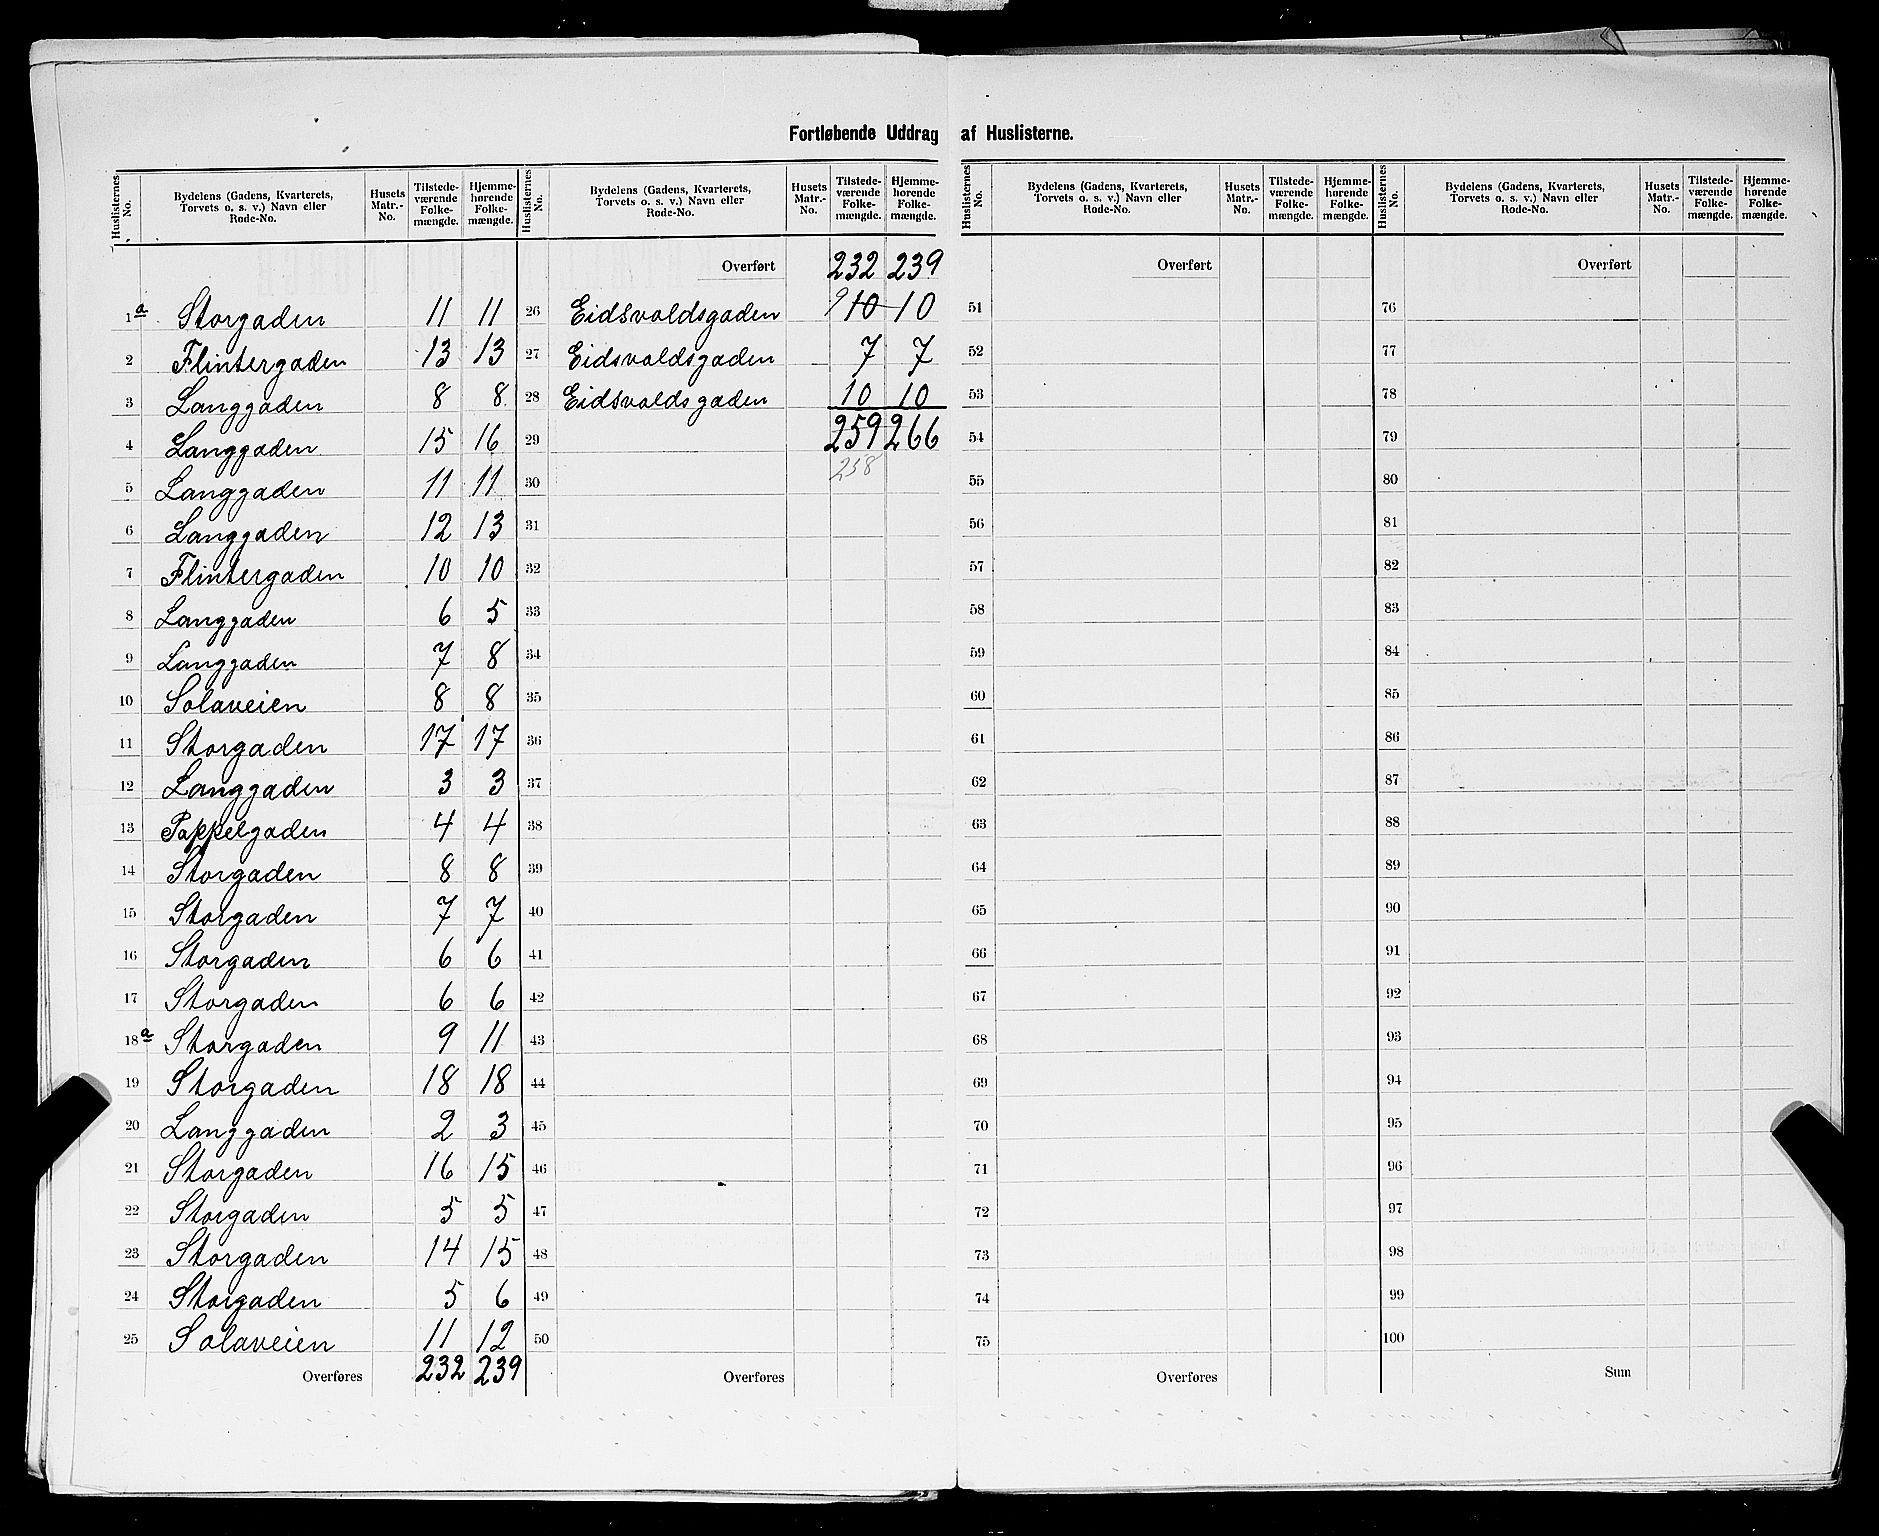 Fortløbende Uddrag af Huslisterne.
Huslisternes No. | Bydelens (Gadens, Kvarterets, Torvets o. s. v.) Navn eller Rode-No. | Husets Matr.-No. | Tilstedeværende Folkemængde. | Hjemmehørende Folkemængde.
1 a Storgaden 11 11
2 Flintergaden 13 13
3 Langgaden 8 8
4 Langgaden 15 16
5 Langgaden 11 11
6 Langgaden 12 13
7 Flintergaden 10 10
8 Langgaden 6 5
9 Langgaden 7 8
10 Solaveien 8 8
11 Storgaden 17 17
12 Langgaden 3 3
13 Poppelgaden 4 4
14 Storgaden 8 8
15 Storgaden 7 7
16 Storgaden 6 6
17 Storgaden 6 6
18 a Storgaden 9 11
19 Storgaden 18 18
20 Langgaden 2 3
21 Storgaden 16 15
22 Storgaden 5 5
23 Storgaden 14 15
24 Storgaden 5 6
25 Solaveien 11 12
Overføres 232 239
Huslisternes No. | Bydelens (Gadens, Kvarterets, Torvets o. s. v.) Navn eller Rode-No. | Husets Matr.-No. | Tilstedeværende Folkemængde. | Hjemmehørende Folkemængde.
Overført 232 239
26 Eidsvoldsgaden 9 10 10
27 Eidsvoldsgaden 7 7
28 Eidsvoldsgaden 10 10
29 259 266
30 258
31
32
33
34
35
36
37
38
39
40
41
42
43
44
45
46
47
48
49
50
Overføres
Huslisternes No. | Bydelens (Gadens, Kvarterets, Torvets o. s. v.) Navn eller Rode-No. | Husets Matr.-No. | Tilstedeværende Folkemængde. | Hjemmehørende Folkemængde.
Overført
51
52
53
54
55
56
57
58
59
60
61
62
63
64
65
66
67
68
69
70
71
72
73
74
75
Overføres
Huslisternes No. | Bydelens (Gadens, Kvarterets, Torvets o. s. v.) Navn eller Rode-No. | Husets Matr.-No. | Tilstedeværende Folkemængde. | Hjemmehørende Folkemængde.
Overført
76
77
78
79
80
81
82
83
84
85
86
87
88
89
90
91
92
93
94
95
96
97
98
99
100
Sum